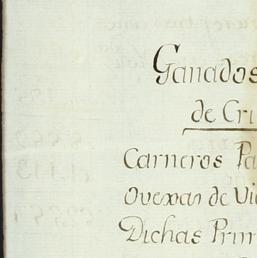 Ganados
de Cri
Carneros Pa
Ovexas de Vi
Dichas Prim